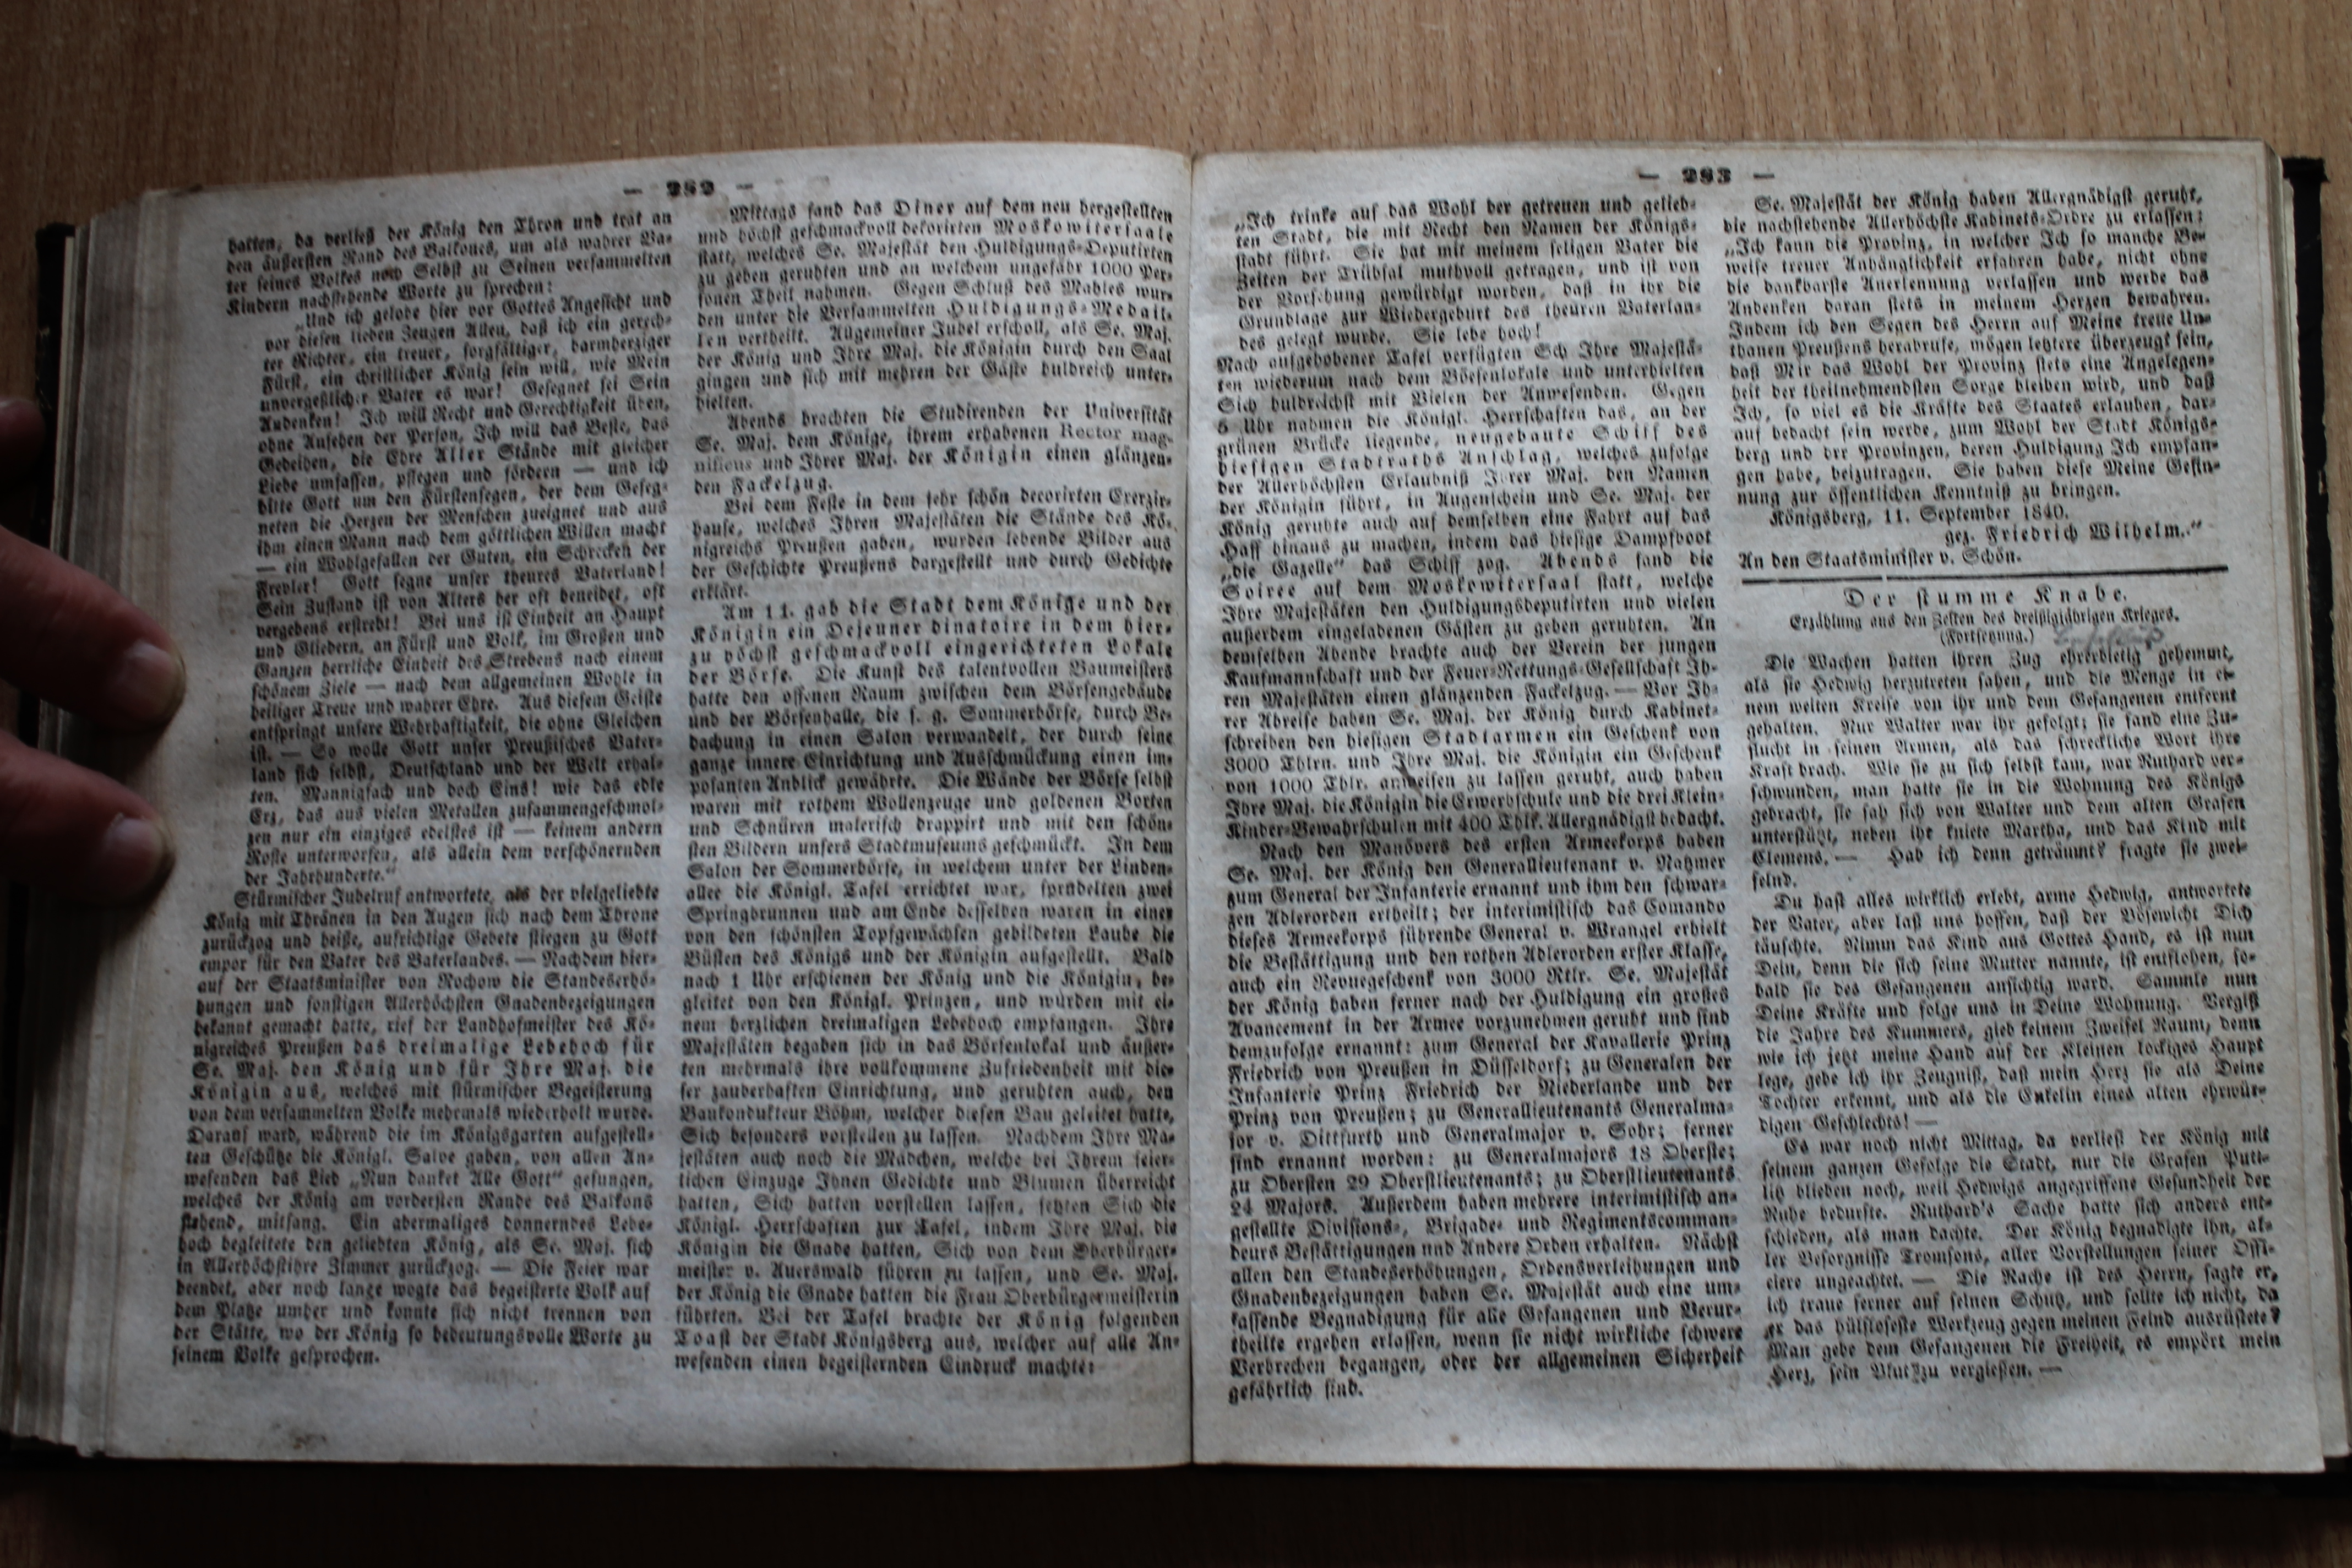 — 282 —
hatten, da verließ der König den Thron und trat an
den äußersten Rand des Balkones, um als wahrer Va-
ter seines Volkes noch Selbst zu Seinen versammelten
Kindern nachstehende Worte zu sprechen:
„Und ich gelobe hier vor Gottes Angesicht und
vor diesen lieben Zeugen Allen, daß ich ein gerech-
ter Richter, ein treuer, sorgfältiger, barmherziger
Fürst, ein christlicher König sein will, wie Mein
unvergeßlicher Vater es war! Gesegnet sei Sein
Andenken! Ich will Recht und Gerechtigkeit üben,
ohne Ansehen der Person, Ich will das Beste, das
Gedeihen, die Ehre Aller Stände mit gleicher
Liebe umfassen, pflegen und fördern — und ich
bitte Gott um den Fürstensegen, der dem Geseg-
neten die Herzen der Menschen zueignet und aus
ihm einen Mann nach dem göttlichen Willen macht
— ein Wohlgefallen der Guten, ein Schrecken der
Frevler! Gott segne unser theures Vaterland!
Sein Zustand ist von Alters her oft beneidet, oft
vergebens erstrebt! Bei uns ist Einheit an Haupt
und Gliedern, an Fürst und Volk, im Großen und
Ganzen herrliche Einheit des Strebens nach einem
schönem Ziele — nach dem allgemeinen Wohle in
heiliger Treue und wahrer Ehre. Aus diesem Geiste
entspringt unsere Wehrhaftigkeit, die ohne Gleichen
ist. — So wolle Gott unser Preußisches Vater-
land sich selbst, Deutschland und der Welt erhal-
ten. Mannigfach und doch Eins! wie das edle
Erz, das aus vielen Metallen zusammengeschmol-
zen nur ein einziges edelstes ist — keinem andern
Roste unterworfen, als allein dem verschönernden
der Jahrhunderte.“
Stürmischer Jubelruf antwortete, als der vielgeliebte
König mit Thränen in den Augen sich nach dem Throne
zurückzog und heiße, aufrichtige Gebete stiegen zu Gott
empor für den Vater des Vaterlandes. — Nachdem hier-
auf der Staatsminister von Rochow die Standeserhö-
hungen und sonstigen Allerhöchsten Gnadenbezeigungen
bekannt gemacht hatte, rief der Landhofmeister des Kö-
nigreiches Preußen das dreimalige Lebehoch für
Se. Maj. den König und für Ihre Maj. die
Königin aus, welches mit stürmischer Begeisterung
von dem versammelten Volke mehrmals wiederholt wurde.
Darauf ward, während die im Königsgarten aufgestell-
ten Geschütze die Königl. Salve gaben, von allen An-
wesenden das Lied „Nun danket Alle Gott“ gesungen,
welches der König am vordersten Rande des Balkons
stehend, mitsang. Ein abermaliges donnerndes Lebe-
hoch begleitete den geliebten König, als Se. Maj. sich
in Allerhöchstihre Zimmer zurückzog. — Die Feier war
beendet, aber noch lange wogte das begeisterte Volk auf
dem Platze umher und konnte sich nicht trennen von
der Stätte, wo der König so bedeutungsvolle Worte zu
seinem Volke gesprochen.
Mittags fand das Diner auf dem neu hergestellten
und höchst geschmackvoll dekorirten Moskowitersaale
statt, welches Se. Majestät den Huldigungs-Deputirten
zu geben geruhten und an welchem ungefähr 1000 Per-
sonen Theil nahmen. Gegen Schluß des Mahles wur-
den unter die Versammelten Huldigungs-Medail-
len vertheilt. Allgemeiner Jubel erscholl, als Se. Maj.
der König und Ihre Maj. die Königin durch den Saal
gingen und sich mit mehren der Gäste huldreich unter-
hielten.
Abends brachten die Studirenden der Universität
Se. Maj. dem Könige, ihrem erhabenen Rector mag-
nificus und Ihrer Maj. der Königin einen glänzen-
den Fackelzug.
Bei dem Feste in dem sehr schön decorirten Exerzir-
hause, welches Ihren Majestäten die Stände des Kö-
nigreichs Preußen gaben, wurden lebende Bilder aus
der Geschichte Preußens dargestellt und durch Gedichte
erklärt.
Am 11. gab die Stadt dem Könige und der
Königin ein Dejeuner dinatoire in dem hier-
zu höchst geschmackvoll eingerichteten Lokale
der Börse. Die Kunst des talentvollen Baumeisters
hatte den offenen Raum zwischen dem Börsengebäude
und der Börsenhalle, die s. g. Sommerbörse, durch Be-
dachung in einen Salon verwandelt, der durch seine
ganze innere Einrichtung und Ausschmückung einen im-
posanten Anblick gewährte. Die Wände der Börse selbst
waren mit rothem Wollenzeuge und goldenen Borten
und Schnüren malerisch drappirt und mit den schön-
sten Bildern unsers Stadtmuseums geschmückt. In dem
Salon der Sommerbörse, in welchem unter der Linden-
allee die Königl. Tafel errichtet war, sprudelten zwei
Springbrunnen und am Ende desselben waren in einer
von den schönsten Topfgewächsen gebildeten Laube die
Büsten des Königs und der Königin aufgestellt. Bald
nach 1 Uhr erschienen der König und die Königin, be-
gleitet von den Königl. Prinzen, und wurden mit ei-
nem herzlichen dreimaligen Lebehoch empfangen. Ihre
Majestäten begaben sich in das Börsenlokal und äußer-
ten mehrmals ihre vollkommene Zufriedenheit mit die-
ser zauberhaften Einrichtung, und geruhten auch, den
Baukondukteur Böhm, welcher diesen Bau geleitet hatte,
Sich besonders vorstellen zu lassen. Nachdem Ihre Ma-
jestäten auch noch die Mädchen, welche bei Ihrem feier-
lichen Einzuge Ihnen Gedichte und Blumen überreicht
hatten, Sich hatten vorstellen lassen, setzten Sich die
Königl. Herrschaften zur Tafel, indem Ihre Maj. die
Königin die Gnade hatten, Sich von dem Oberbürger-
meister v. Auerswald führen zu lassen, und Se. Maj.
der König die Gnade hatten die Frau Oberbürgermeisterin
führten. Bei der Tafel brachte der König folgenden
Toast der Stadt Königsberg aus, welcher auf alle An-
wesenden einen begeisternden Eindruck machte:
— 283 —
„Ich trinke auf das Wohl der getreuen und gelieb-
ten Stadt, die mit Recht den Namen der Königs-
stadt führt. Sie hat mit meinem seligen Vater die
Zeiten der Trübsal muthvoll getragen, und ist von
der Vorsehung gewürdigt worden, daß in ihr die
Grundlage zur Wiedergeburt des theuren Vaterlan-
des gelegt wurde. Sie lebe hoch!
Nach aufgehobener Tafel verfügten Sch Ihre Majestä-
ten wiederum nach dem Börsenlokale und unterhielten
Sich huldreichst mit Vielen der Anwesenden. Gegen
5 Uhr nahmen die Königl. Herrschaften das, an der
grünen Brücke liegende, neugebaute Schiff des
hiesigen Stadtraths Anschlag, welches zufolge
der Allerhöchsten Erlaubniß Ihrer Maj. den Namen
der Königin führt, in Augenschein und Se. Maj. der
König geruhte auch auf demselben eine Fahrt auf das
Haff hinaus zu machen, indem das hiesige Dampfboot
„die Gazelle“ das Schiff zog. Abends fand die
Soiree auf dem Moskowitersaal statt, welche
Ihre Majestäten den Huldigungsdeputirten und vielen
außerdem eingeladenen Gästen zu geben geruhten. An
demselben Abende brachte auch der Verein der jungen
Kaufmannschaft und der Feuer-Rettungs-Gesellschaft Ih-
ren Majestäten einen glänzenden Fackelzug. — Vor Ih-
rer Abreise haben Se. Maj. der König durch Kabinet-
schreiben den hiesigen Stadtarmen ein Geschenk von
3000 Thlrn. und Ihre Maj. die Königin ein Geschenk
von 1000 Thlr. anweisen zu lassen geruht, auch haben
Ihre Maj. die Königin die Erwerbschule und die drei Klein-
Kinder-Bewahrschulen mit 400 Thlr. Allergnädigst bedacht.
Nach den Manövers des ersten Armeekorps haben
Se. Maj. der König den Generallieutenant v. Natzmer
zum General der Infanterie ernannt und ihm den schwar-
zen Adlerorden ertheilt; der interimistisch das Comando
dieses Armeekorps führende General v. Wrangel erhielt
die Bestättigung und den rothen Adlerorden erster Klasse,
auch ein Revuegeschenk von 3000 Rtlr. Se. Majestät
der König haben ferner nach der Huldigung ein großes
Avancement in der Armee vorzunehmen geruht und sind
demzufolge ernannt: zum General der Kavallerie Prinz
Friedrich von Preußen in Düsseldorf; zu Generalen der
Infanterie Prinz Friedrich der Niederlande und der
Prinz von Preußen; zu Generallieutenants Generalma-
jor v. Dittfurth und Generalmajor v. Sohr; ferner
sind ernannt worden: zu Generalmajors 18 Oberste;
zu Obersten 29 Oberstlieutenants; zu Oberstlieutenants
24 Majors. Außerdem haben mehrere interimistisch an-
gestellte Divisions-, Brigade- und Regimentscomman-
deurs Bestättigungen und Andere Orden erhalten. Nächst
allen den Standeserhöhungen, Ordensverleihungen und
Gnadenbezeigungen haben Se. Majestät auch eine um-
fassende Begnadigung für alle Gefangenen und Verur-
theilte ergehen erlassen, wenn sie nicht wirkliche schwere
Verbrechen begangen, oder der allgemeinen Sicherheit
gefährlich sind.
Se. Majestät der König haben Allergnädigst geruht,
die nachstehende Allerhöchste Kabinets-Ordre zu erlassen:
„Ich kann die Provinz, in welcher Ich so manche Be-
weise treuer Anhänglichkeit erfahren habe, nicht ohne
die dankbarste Anerkennung verlassen und werde das
Andenken daran stets in meinem Herzen bewahren.
Indem ich den Segen des Herrn auf Meine treue Un-
thanen Preußens herabrufe, mögen letztere überzeugt sein,
daß Mir das Wohl der Provinz stets eine Angelegen-
heit der theilnehmendsten Sorge bleiben wird, und daß
Ich, so viel es die Kräfte des Staates erlauben, dar-
auf bedacht sein werde, zum Wohl der Stadt Königs-
berg und der Provinzen, deren Huldigung Ich empfan-
gen habe, beizutragen. Sie haben diese Meine Gesin-
nung zur öffentlichen Kenntniß zu bringen.
Königsberg, 11. September 1840.
gez. Friedrich Wilhelm.“
An den Staatsminister v. Schön.
Der stumme Knabe.
Erzählung aus den Zeiten des dreißigjährigen Krieges.
(Fortsetzung.)
Die Wachen hatten ihren Zug ehrerbietig gehemmt,
als sie Hedwig herzutreten sahen, und die Menge in ei-
nem weiten Kreise von ihr und dem Gefangenen entfernt
gehalten. Nur Walter war ihr gefolgt; sie fand eine Zu-
flucht in seinen Armen, als das schreckliche Wort ihre
Kraft brach. Wie sie zu sich selbst kam, war Ruthard ver-
schwunden, man hatte sie in die Wohnung des Königs
gebracht, sie sah sich von Walter und dem alten Grafen
unterstützt, neben ihr kniete Martha, und das Kind mit
Clemens. — Hab ich denn geträumt? fragte sie zwei-
felnd.
Du hast alles wirklich erlebt, arme Hedwig, antwortete
der Vater, aber laß uns hoffen, daß der Bösewicht Dich
täuschte. Nimm das Kind aus Gottes Hand, es ist nun
Dein, denn die sich seine Mutter nannte, ist entflohen, so-
bald sie des Gefangenen ansichtig ward. Sammle nun
Deine Kräfte und folge uns in Deine Wohnung. Vergiß
die Jahre des Kummers, gieb keinem Zweifel Raum, denn
wie ich jetzt meine Hand auf der Kleinen lockiges Haupt
lege, gebe ich ihr Zeugniß, daß mein Herz sie als Deine
Tochter erkennt, und als die Enkelin eines alten ehrwür-
digen Geschlechts! —
Es war noch nicht Mittag, da verließ der König mit
seinem ganzen Gefolge die Stadt, nur die Grafen Putt-
litz blieben noch, weil Hedwigs angegriffene Gesundheit der
Ruhe bedurfte. Ruthard's Sache hatte sich anders ent-
schieden, als man dachte. Der König begnadigte ihn, al-
ler Besorgnisse Tromsons, aller Vorstellungen seiner Offi-
ciere ungeachtet. — Die Rache ist des Herrn, sagte er,
ich traue ferner auf seinen Schutz, und sollte ich nicht, da
er das hülfloseste Werkzeug gegen meinen Feind ausrüstete?
Man gebe dem Gefangenen die Freiheit, es empört mein
Herz, sein Blut zu vergießen. —